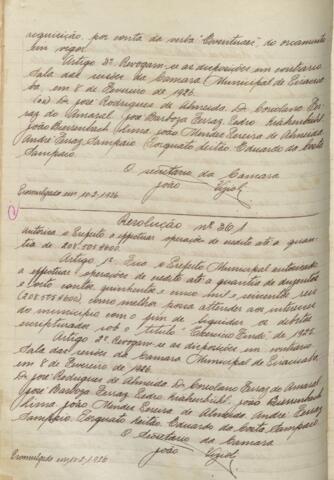 requisição, por conta da verba "Eventuaes", do orçamento
em vigor.
Artigo 2º Revogam-se as disposições em contrario.
Sala das sessões da Camara Municipal de Piracica
ba, em 8 de Fevereiro de 1926.
(aa) Dr. José Rodrigues de Almeida, Dr. Coriolano Fer
raz do Amaral, José Barboza Ferraz, Pedro Krahenbühl,
João Bierrenbach Lima, João Mendes Pereira de Almeida,
André Ferraz Sampaio, Torquato Leitão, Eduardo da Costa
Sampaio.
O secretario da Camara
João Vizioli
Promulgada em 10-2-1926.
Resolução nº 261
Autorisa o Prefeito a effectuar operações de credito até a quan
tia de 208:505$600.
Artigo 1º Fica o Prefeito Municipal autorisado
a effectuar operações de credito até a quantia de duzentos
e oito contos, quinhentos e cinco mil e seiscentos reis
(208:505$600), como melhor possa attender aos interesses
do municipio com o fim de liquidar os debitos
escripturados sob o titulo "Exercicio Findo" de 1925.
Artigo 2º Revogam-se as disposições em contrario.
Sala das sessões da Camara Municipal de Piracicaba,
em 8 de Fevereiro de 1926.
Dr. José Rodrigues de Almeida, Dr. Coriolano Ferraz do Amaral,
José Barboza Ferraz, Pedro Krahenbühl, João Bierrenbach
Lima, João Mendes Pereira de Almeida, André Ferraz
Sampaio, Torquato Leitão, Eduardo da Costa Sampaio.
O Secretario da Camara
João Vizioli
Promulgada em 10-2-1926